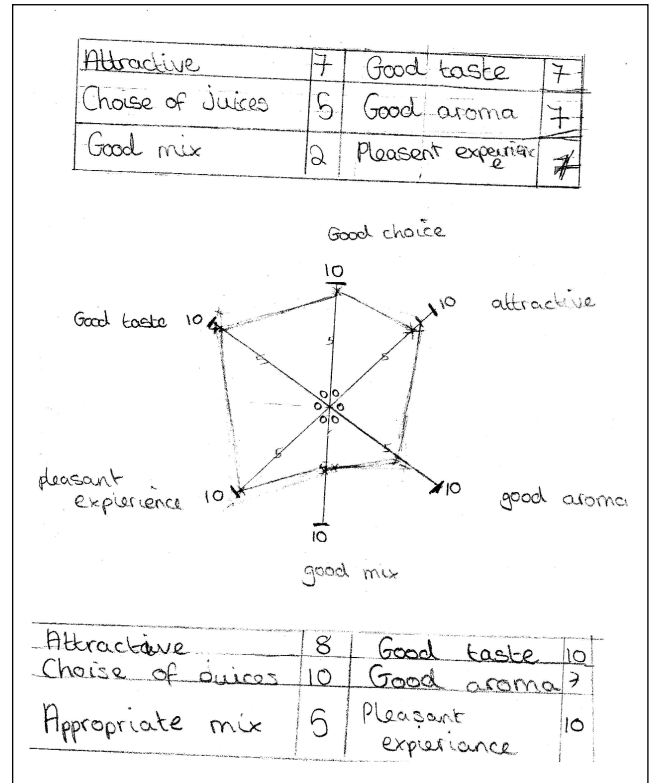 Attractive 7 Good taste 7
Choise of Juices 5 Good aroma 7
Good mix 2 Pleasent experience
Good choice
10
10 attractive
Good taste 10
5
5
5
0 0
0 0
0 0
5
5
5
pleasant
expierience 10
10 good aroma
10
good mix
Attractive 8 Good taste 10
Choise of Juices 10 Good aroma 7
Appropriate mix 5 Pleasant
expieriance 10